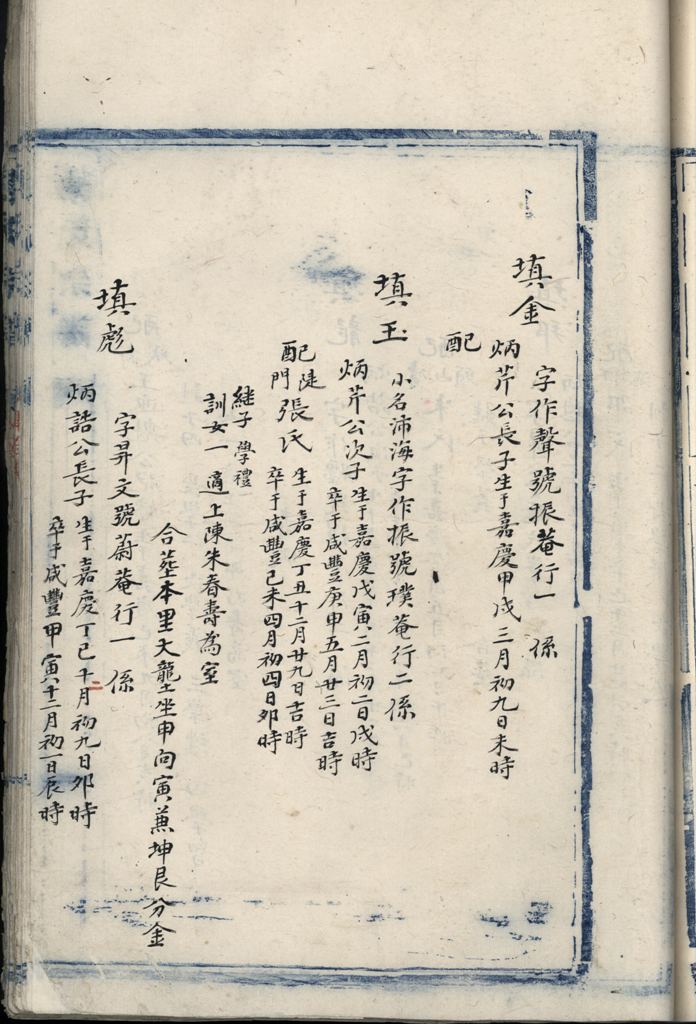 填金
字作聲號振菴行一 係
炳芹公長子生于嘉慶甲戌三月初九日未時
配
填玉
小名沛海字作振號璞菴行二係
炳芹公次子生于嘉慶戊寅二月初二日戌時
卒于咸豐庚申五月廿三日吉時
配陡門張氏生于嘉慶丁丑十二月廿九日吉時
卒于咸豐己未四月初四日卯時
継子學禮
訓女一適上陳朱春壽為室
合塟本里大龍坐申向寅兼坤艮分金
填彪
字昇文號蔚菴行一係
炳誥公長子生于嘉慶丁巳十月初九日卯時
卒于咸豐甲寅十二月初一日辰時